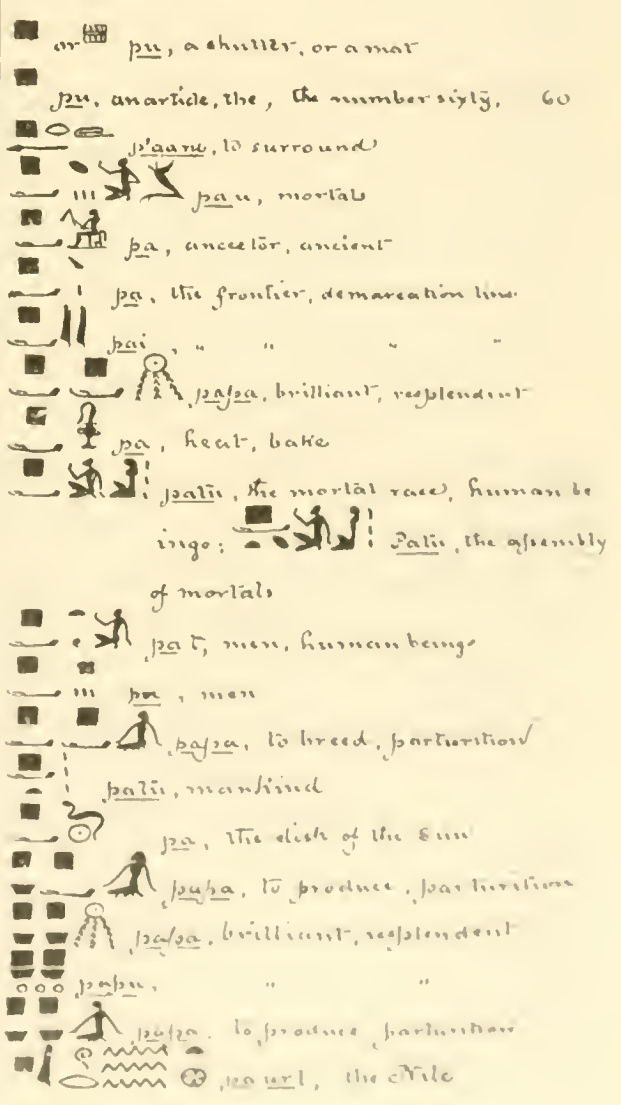 or pu, a shutter, or a mat
pu, an article, the, the number sixty, 60
p'aaru, to surround
pau, mortals
pa, ancestor, ancient
pa, the frontier, demarcation line
pai, " " " "
papa, brilliant, resplendent
pa, heat, bake
patu, the mortal race, human be
ings; Patu, the assembly
of mortals
pat, men, human beings
pa, men
papa, to breed, parturition
patu, mankind
pa, the disk of the Sun
papa, to produce, parturition
papa, brilliant, resplendent
papu, " "
papa, to produce parturition
pa url, the Nile